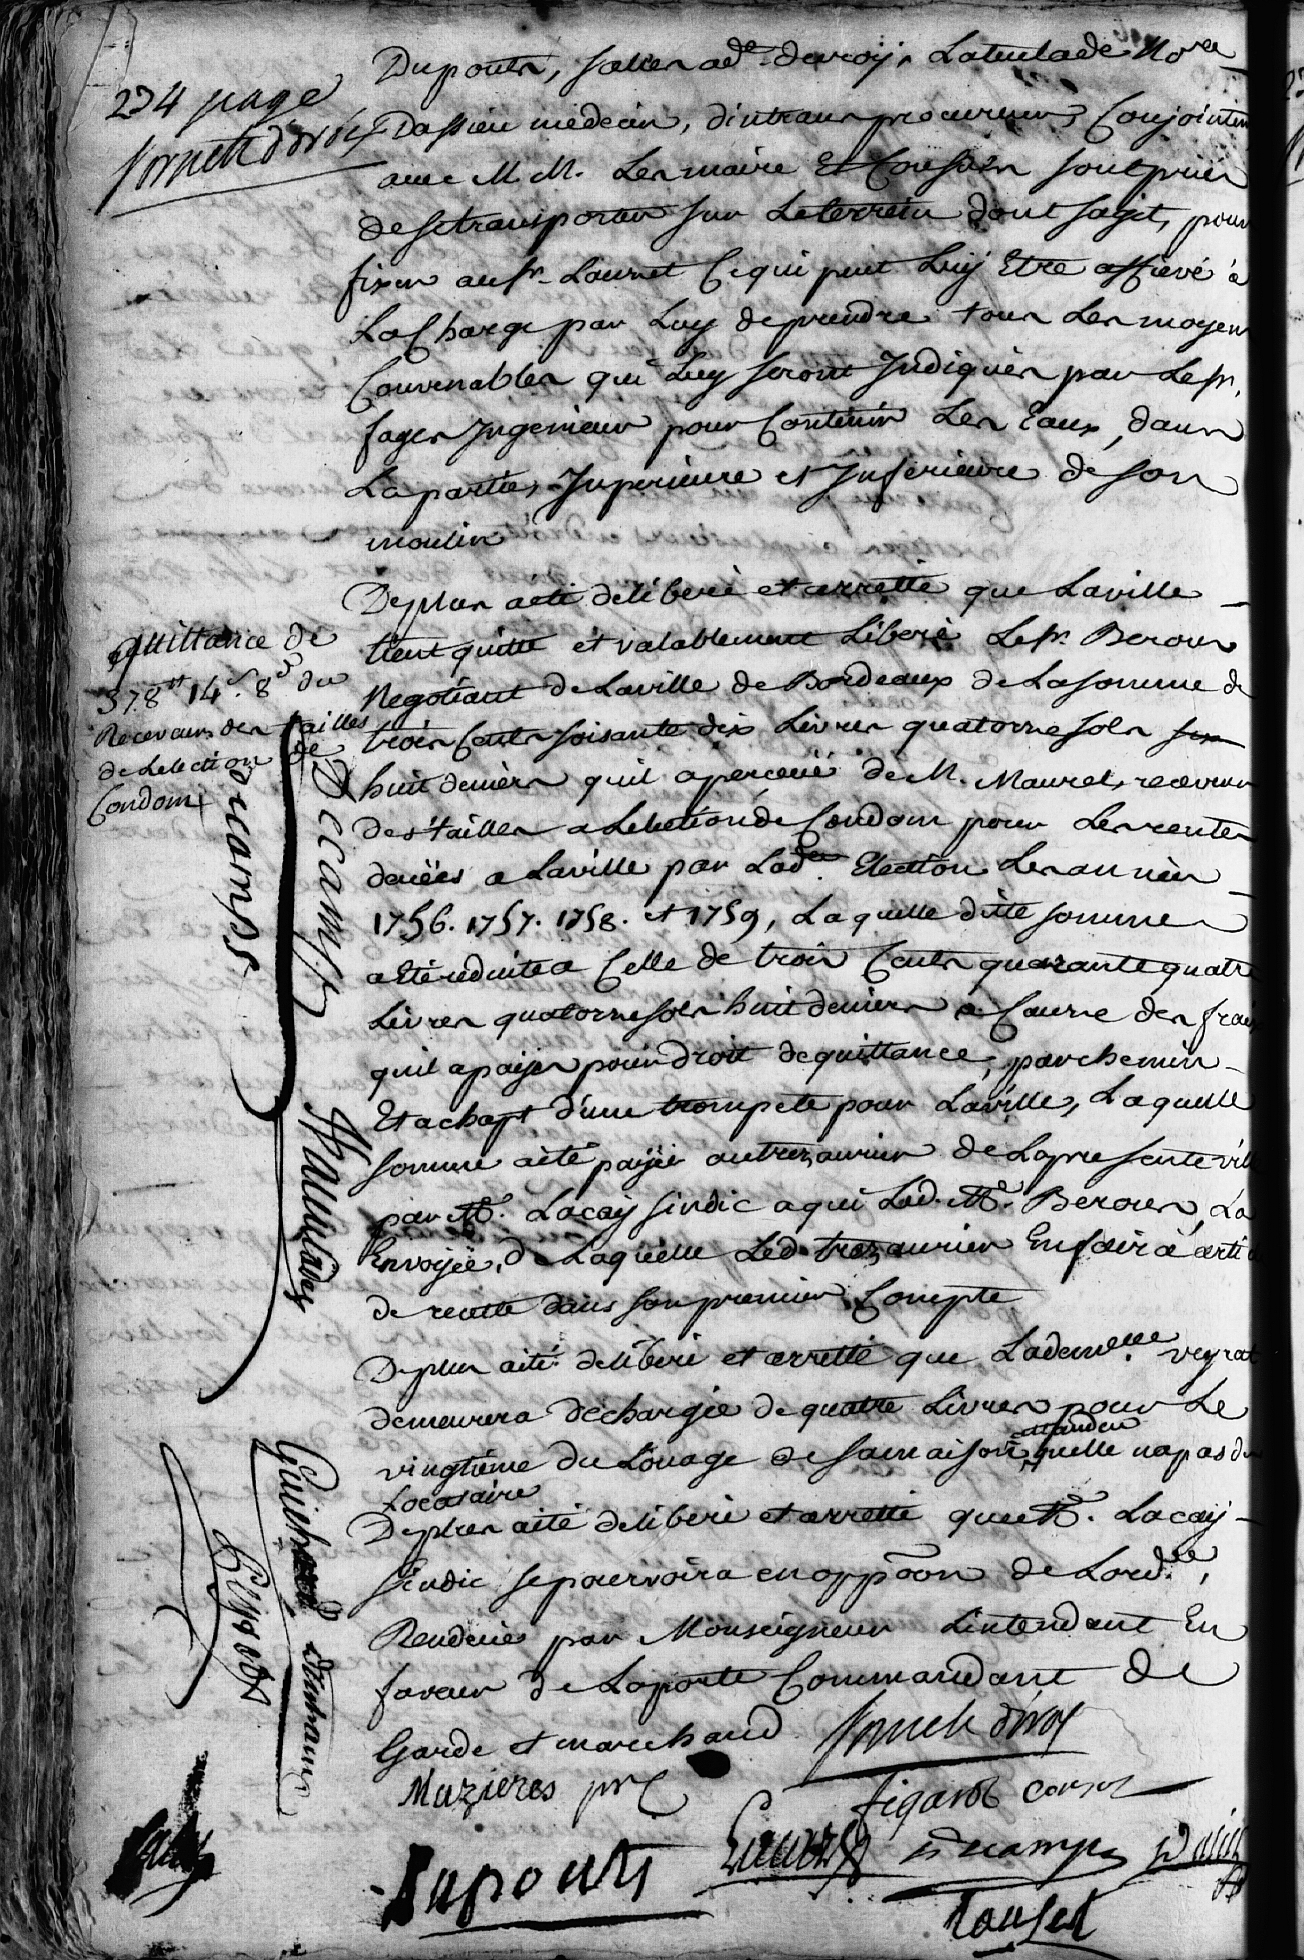 234 page
Duponts, sallen ad.t du roy, Latuelade No.re
Dassieu medecin, dintrans procureur, Conjointem
avec M. M. Les maire Et Consuls sont priés
de se transporter sur Leterrein dont sagit, pour
fixer au sr. Lauzet Ce qui peut Luy Etre affievé à
La Charge par Luy de prendre tous Les moyens
Convenables qui Luy seront Indiqués par Le sr.
fages Ingenieur pour Contenir Les Eaux, dans
La partie Superieure et Inferieure de son
moulin
De plus a été délibéré et arretté que Laville
tient quitte et valablement Liberé Le sr. Berous
Negotiant de Laville de Bordeaux de La somme de
trois Cents soisante dix Livres quatorze sols
huit deniers quil a perceüe de M. Maurel, receveur
des tailles a Lelection de Condom pour Les rentes
deües a Laville par Lad.e Election Les années
1756. 1757. 1758. et 1759, Laquelle ditte somme
a Eté reduite a Celle de trois Cents quarante quatre
Livres quatorze sols huit deniers a Cause des frais
quil a payés pour droit de quittance, parchemin
Et achapt d'une trompete pour Laville, Laquelle
somme a eté payée au trezaurier de La presente ville
par M.e Lacay sindic a qui Led. M.e Berous La
Envoyée, de Laquelle Led. trezaurier En faira arti
de recette dans son premier Compte
De plus a été délibéré et arretté que La dem.elle veyrat
demeurera dechargée de quatre Livres pour Le
vingtième du Loüage de sa maison attandeu quelle na pas de
Locataire
De plus a été délibéré et arretté que M.e Lacay
sindic se pourvoira en oppōon de Lord.ce
Rendüe par Monseigneur Lintendant En
faveur de Laporte Commandant de
Garde et marchand
quittance de
378tt 14s. 8d du
Receveur des tailles
de Lelection de
Condom
Decamps
Guichard
dintrans
Mazieres
figarol consul
Duponts
decamps